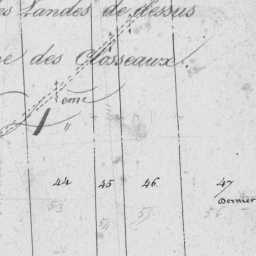 es Landes de dessus
e des Closseaux.
1 eme
44 45 46 47
Dernier
53 54 55 56